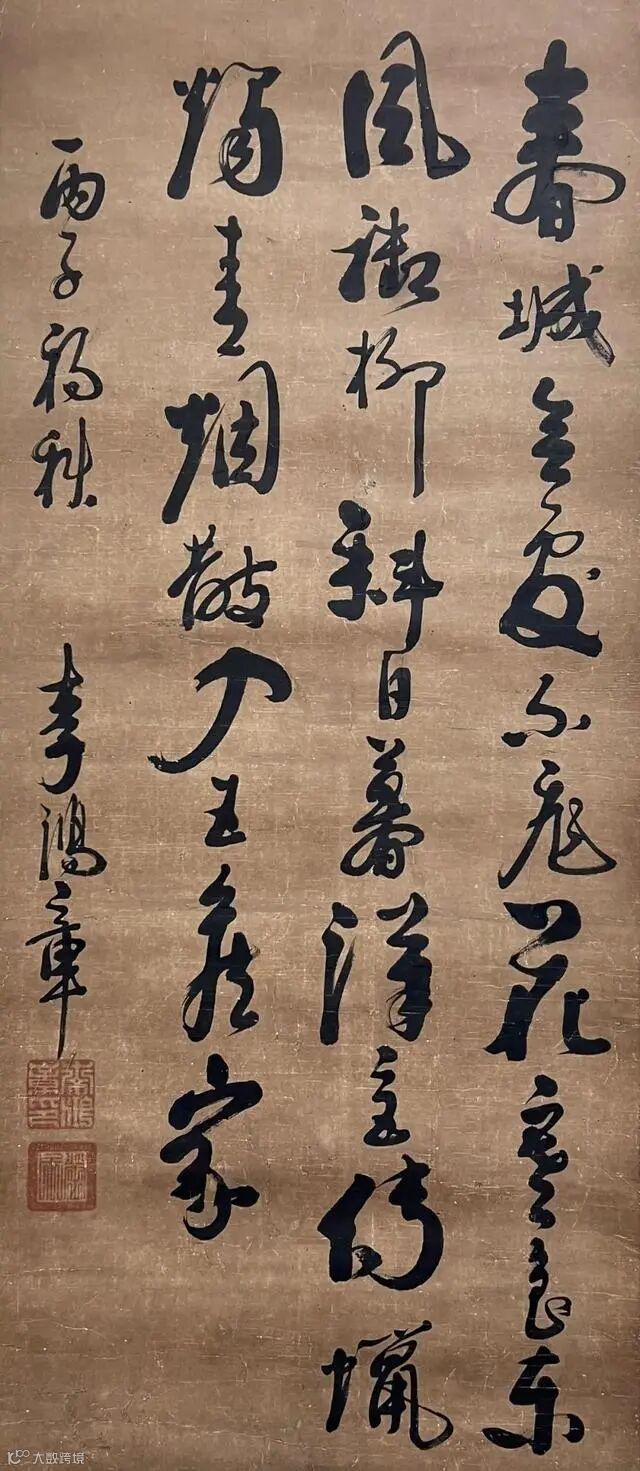 春城無處不飛花寒食東
風御柳斜日暮漢宮傳蠟
燭青烟散入五侯家
丙子初秋 李鴻章
李鴻章印
大数跨境